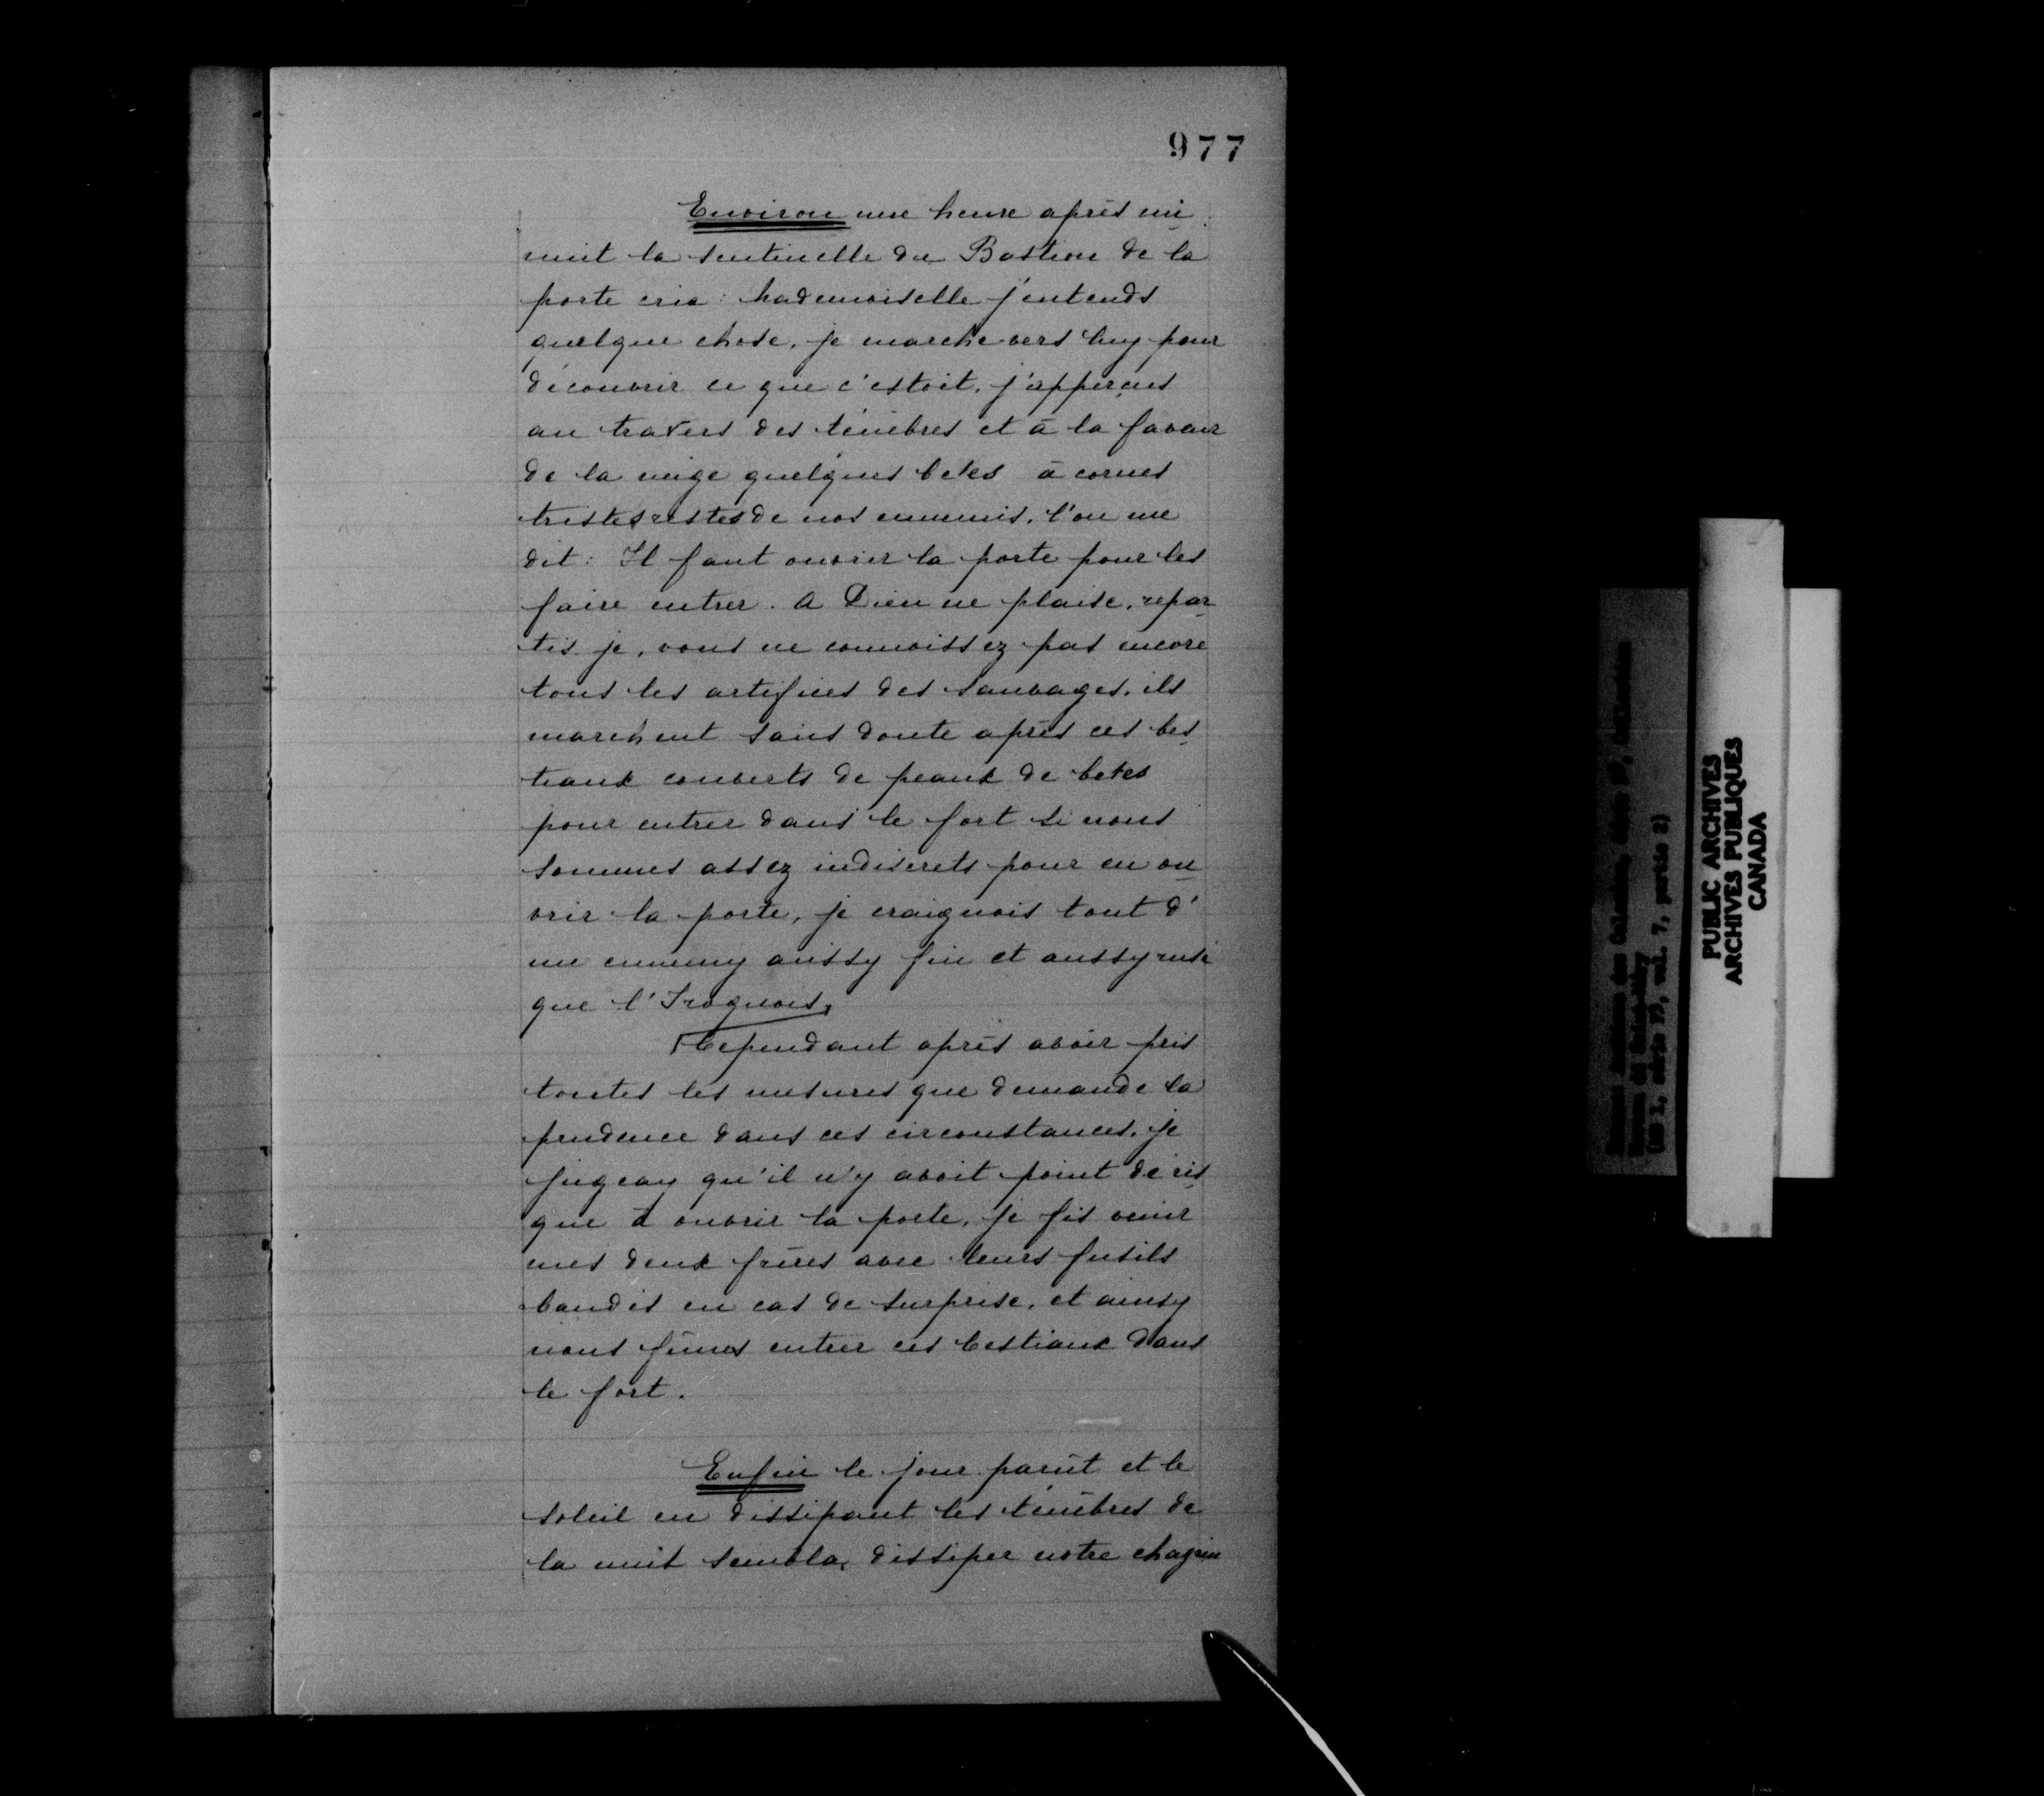 977
Environ une heure après mi
nuit la sentinelle du Bastion de la
porte cria : Mademoiselle j'entends
quelque chose, je marche vers luy pour
découvrir ce que c'estoit, j'apperçus
au travers des ténèbres et à la faveur
de la neige quelques betes à cornes
tristes restes de nos ennemis, l'on me
dit : Il faut ouvrir la porte pour les
faire entrer. A Dieu ne plaise, repar
tis je, vous ne connoissez pas encore
tous les artifices des sauvages, ils
marchent sans doute après ces bes
tiaux couverts de peaux de betes
pour entrer dans le fort si nous
sommes assez indiscrets pour en ou
vrir la porte, je craignois tout d'
un ennemy aussy fin et aussy rusé
que l'Iroquois,
Cependant après avoir pris
toutes les mesures que demande la
prudence dans ces circonstances, je
jugeay qu'il n'y avoit point de ris
que d ouvrir la porte, je fis venir
mes deux frères avec leurs fusils
bandés en cas de surprise, et ainsy
nous fimes entrer ces bestiaux dans
le fort.
Enfin le jour parût et le
soleil en dissipant les ténèbres de
la nuit sembla dissiper notre chagrin
PUBLIC ARCHIVES
ARCHIVES PUBLIQUES
CANADA
(MG 1, série F3, vol. 7, partie 2)